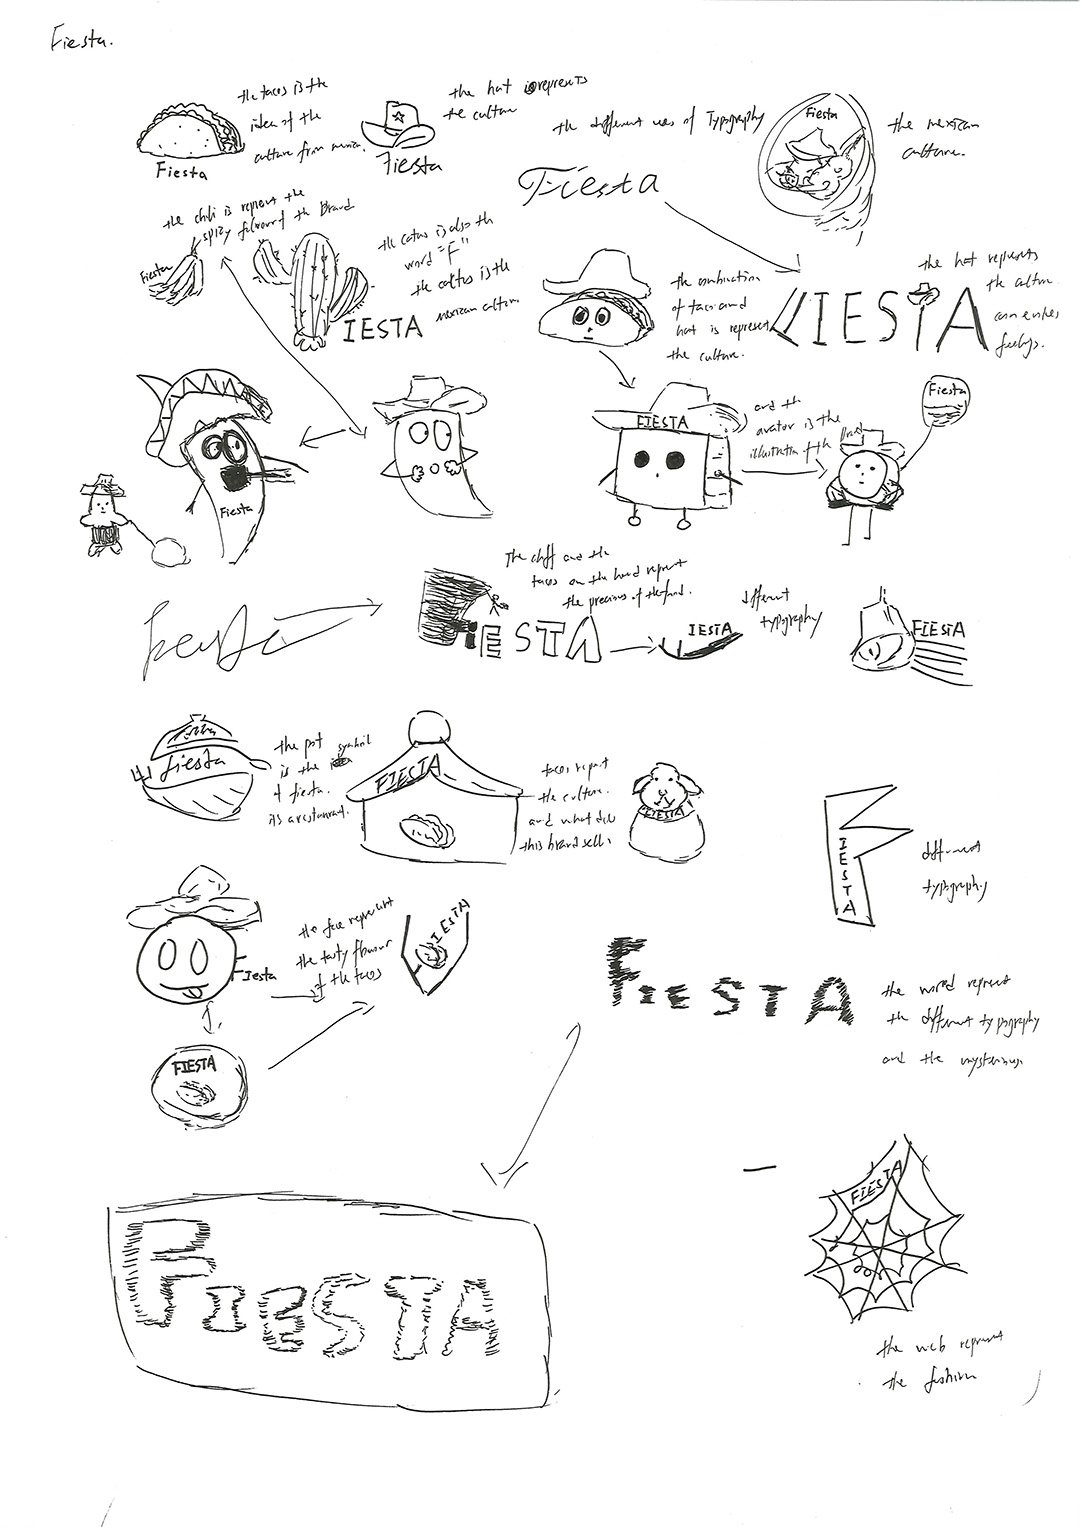 Fiesta.
the tacos is the
idea of the
culture from
Fiesta
the hat represents
the culture
Fiesta
the different uses of Typography
Fiesta
the mexican
culture.
Fiesta
the chili is repesent the
spicy of the Brand
Fiesta
the catus is also the
word "F"
the cactus is the
mexican culture
IESTA
the combination
of taco and
hat is represent
the culture.
the hat represents
the culture
feelings.
FIESTA
FIESTA
and the
avator is the
illustration of the
Fiesta
Fiesta
The cliff and the
tacos on the hand repesent
the precious of the
FIESTA
IESTA
different
typography
FIESTA
fiesta
the pot symbol
is the
fiesta.
its a restaurant.
FIESTA
tacos repesent
the culture.
and what
this brand sells
FIESTA
IESTA
different
typography
Fiesta
the face represent
the tasty flavour
of the tacos
IESTA
FIESTA
FIESTA
the word represent
the different typography
and the
FIESTA
FIESTA
the web represent
the